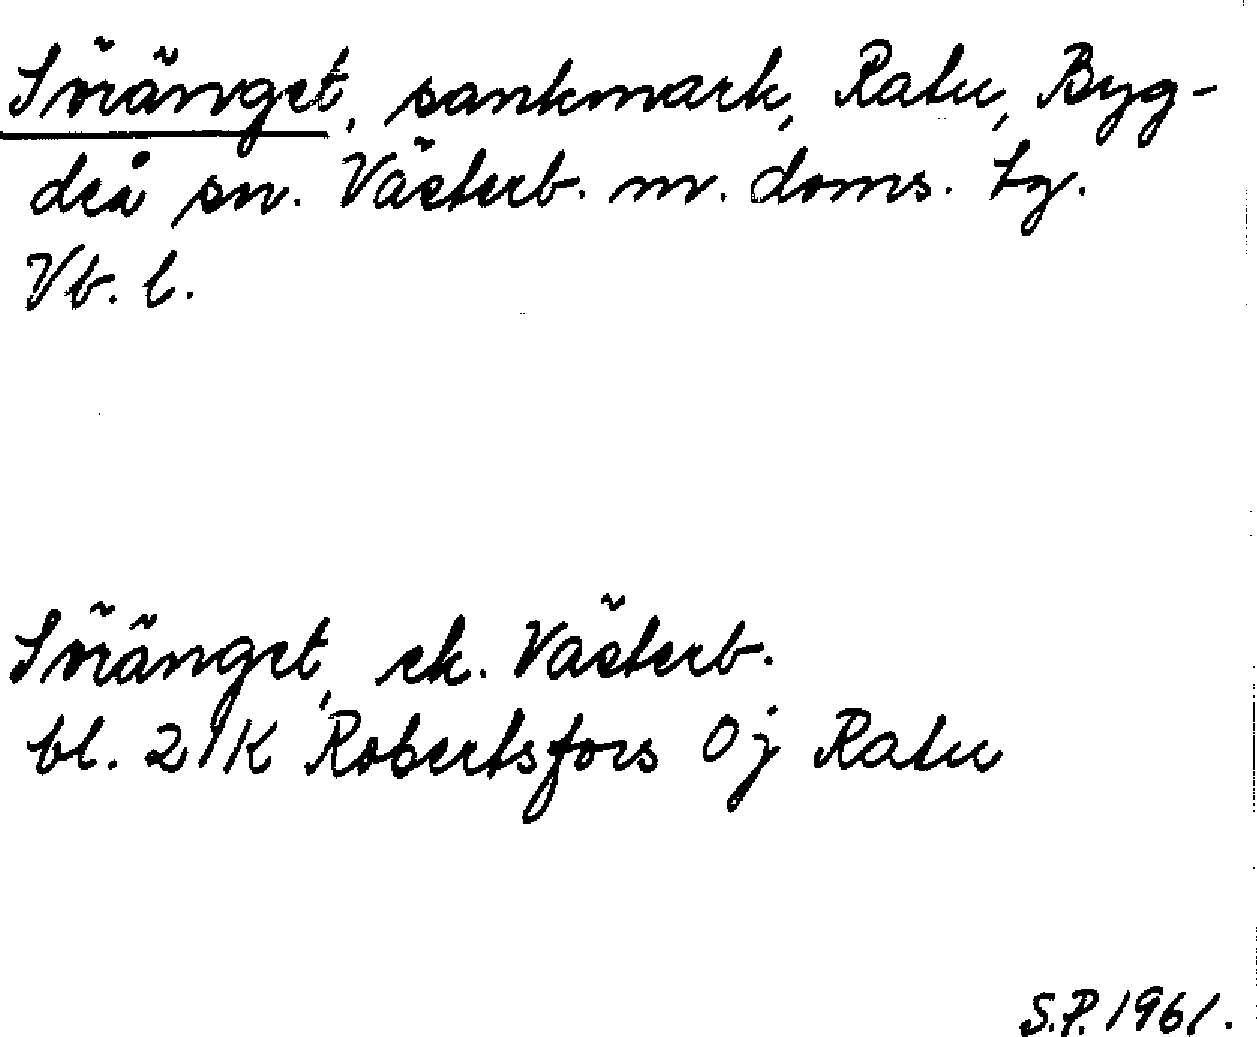 Söränget, sankmark, Ratu, Byg-
deå sn. Västerb. m. doms. tg.
Vb. l.
Söränget, ek. Västerb.
bl. 21K Robertsfors 0j Ratu
S.P. 1961.